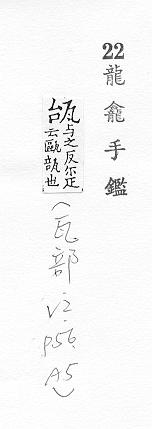 22 龍龕手鑑
瓵 与之反尔疋
云甌瓿也
(瓦部.V2.P56.A5)